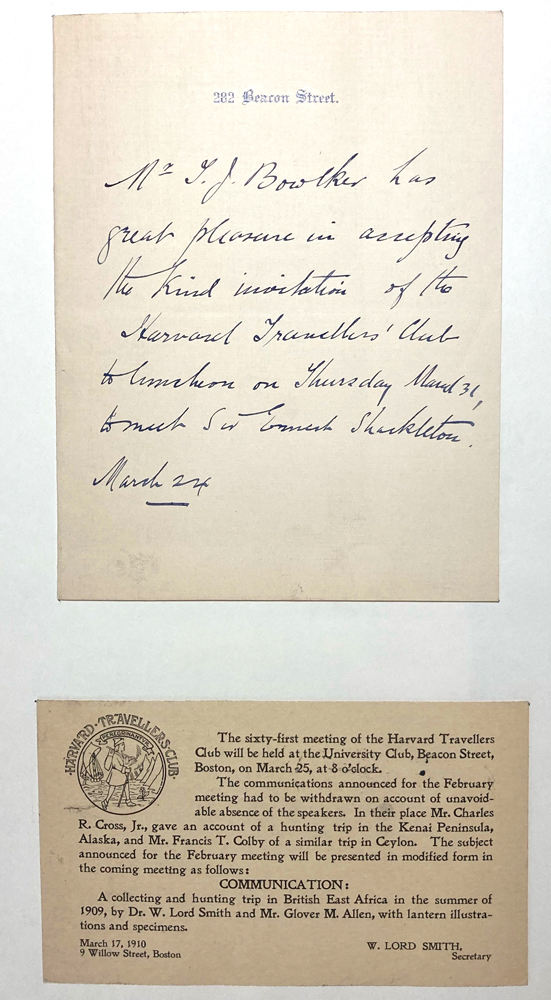 282 Beacon Street.
Mr T. J. Bowlker has
great pleasure in accepting
the kind invitation of the
Harvard Travellers' Club
to luncheon on Thursday March 31,
to meet Sir Ernest Shackleton.
March 24
HARVARD·TRAVELLERS CLUB·
The sixty-first meeting of the Harvard Travellers
Club will be held at the University Club, Beacon Street,
Boston, on March 25, at 8 o'clock.
The communications announced for the February
meeting had to be withdrawn on account of unavoid-
able absence of the speakers. In their place Mr. Charles
R. Cross, Jr., gave an account of a hunting trip in the Kenai Peninsula,
Alaska, and Mr. Francis T. Colby of a similar trip in Ceylon. The subject
announced for the February meeting will be presented in modified form in
the coming meeting as follows:
COMMUNICATION:
A collecting and hunting trip in British East Africa in the summer of
1909, by Dr. W. Lord Smith and Mr. Glover M. Allen, with lantern illustra-
tions and specimens.
March 17, 1910
9 Willow Street, Boston
W. LORD SMITH,
Secretary